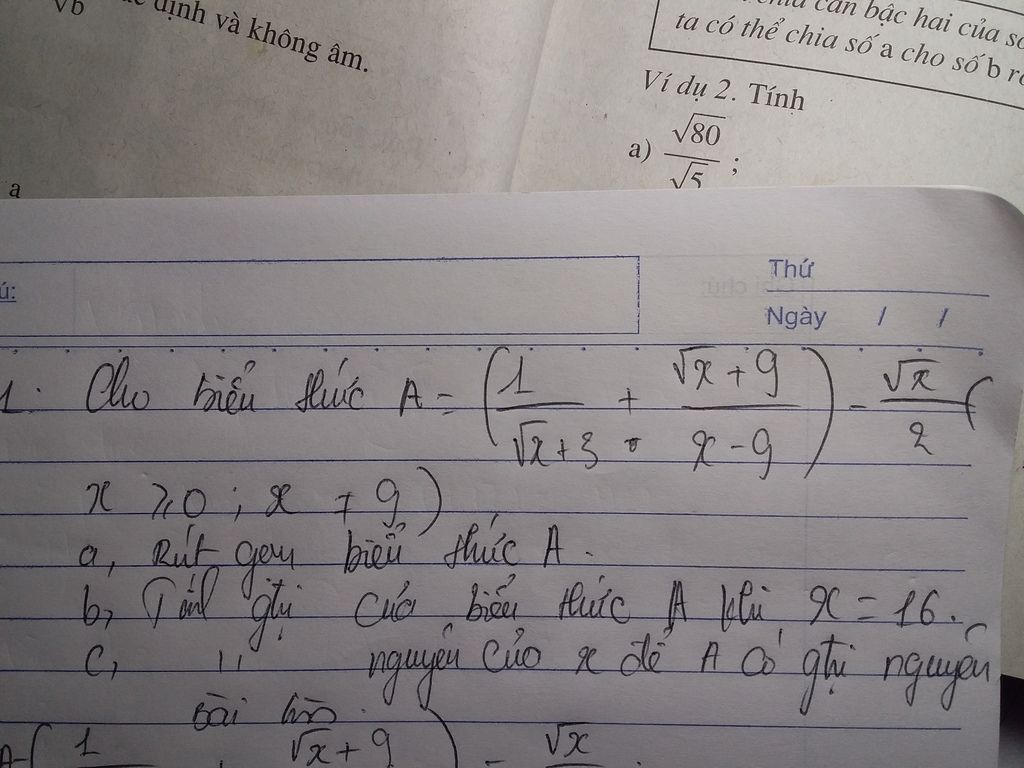 √b định và không âm.
chia căn bậc hai của số
ta có thể chia số a cho số b rồ
Ví dụ 2. Tính
a) √80/√5 ;
a
Thứ
ú:
Ngày / /
1. Cho biểu thức A = (1/(√x+3) + (√x+9)/(x-9)) - √x/2 (
x ⩾ 0 ; x ≠ 9)
a, Rút gọn biểu thức A.
b, Tính gtrị của biểu thức A khi x = 16.
c, " nguyên của x để A có gtrị nguyên
Bài làm.
A=(1 √x+9) - √x